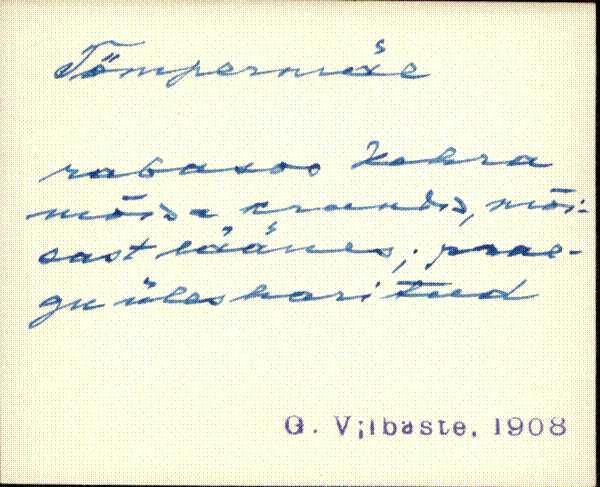 Tömpermäe
rabasoo Kehra
mõisa krundis, mõi-
sast läänes; prae-
gu üles haritud
G. Vilbaste, 1908